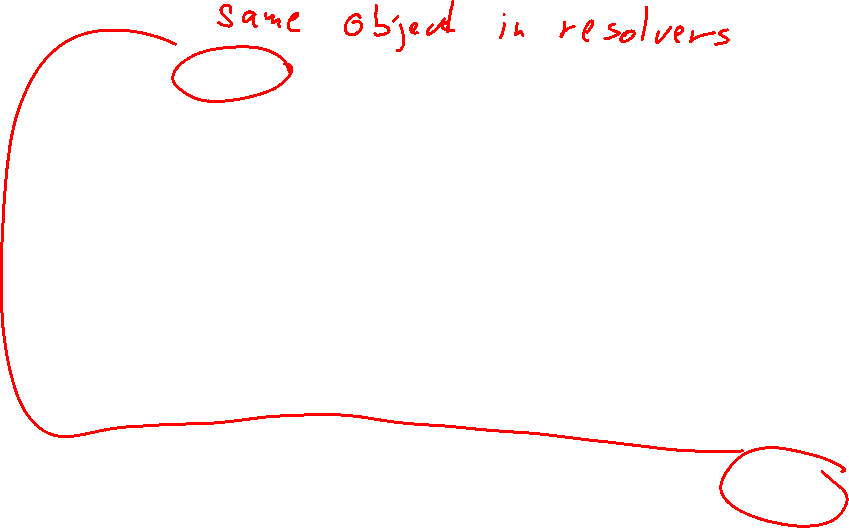 same object in resolvers